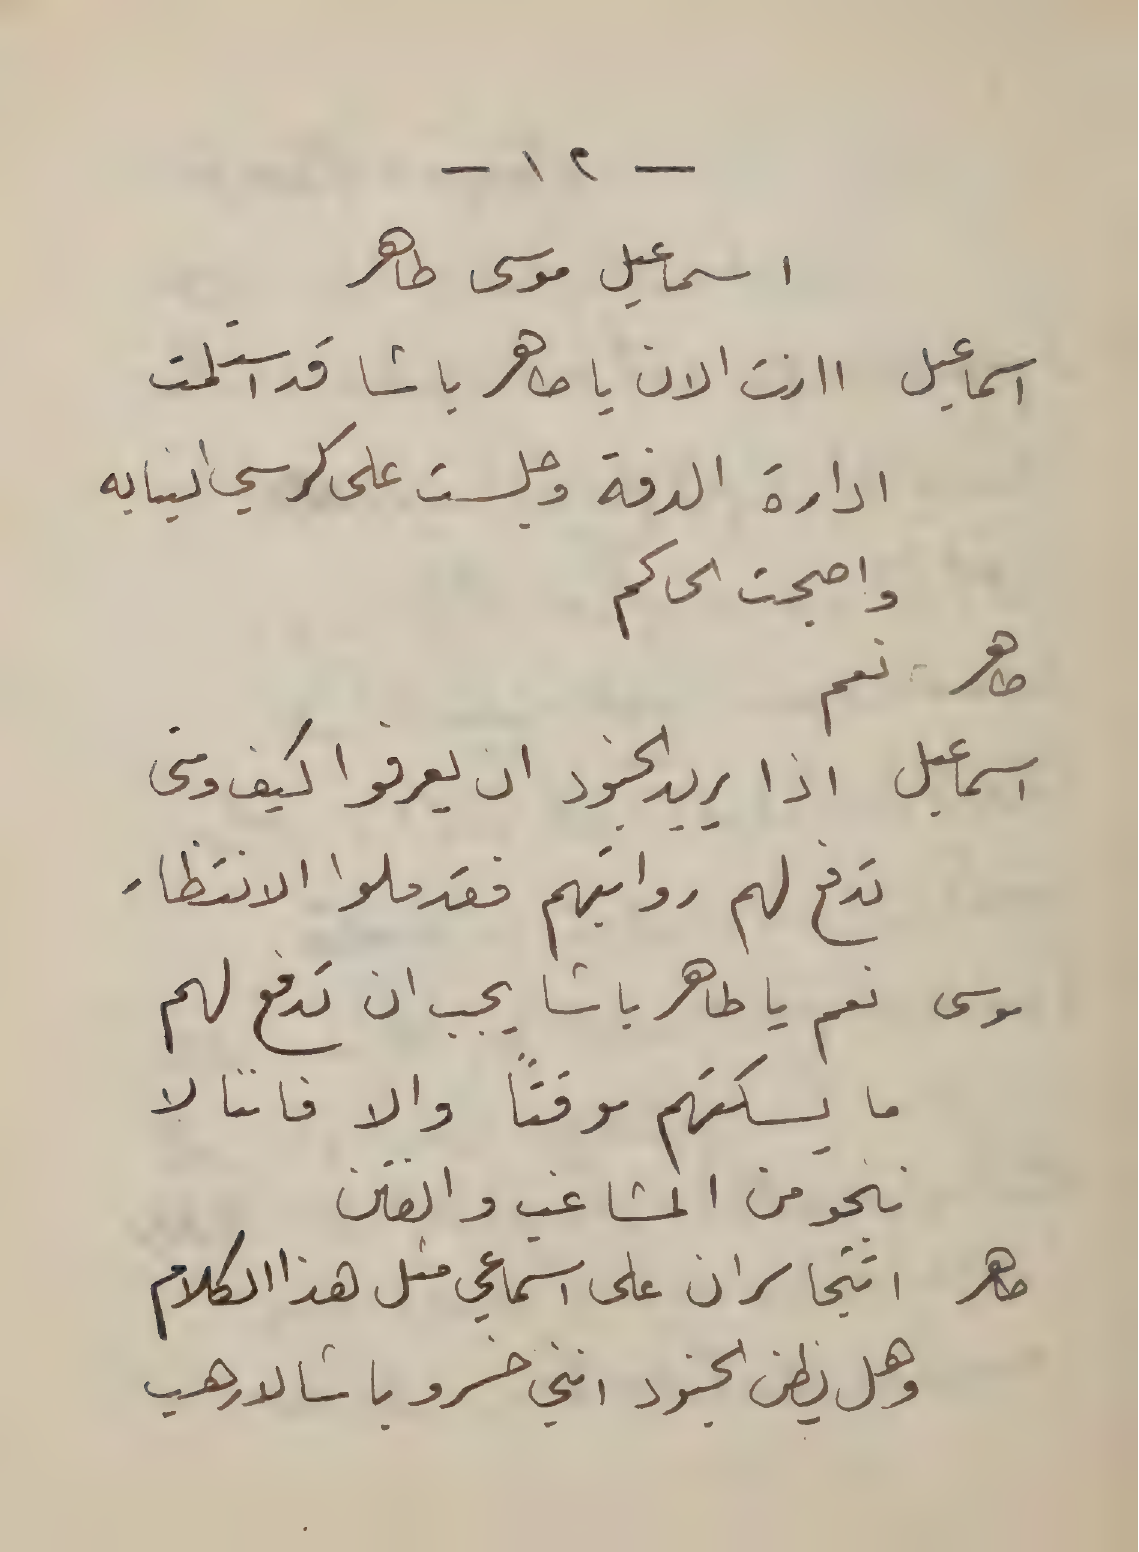 — ١٢ —
اسماعيل موسى طاهر
اسماعيل اانت الان يا طاهر باشا قد استلمت
ادارة الدفة وجلست على كرسي النيابه
واصبحت الحاكم
طاهر نعم
اسماعيل اذا يريد الجنود ان يعرفوا كيف ومتى
تدفع لهم رواتبهم فقد ملوا الانتظار
موسى نعم يا طاهر باشا يجب ان تدفع لهم
ما يسكتهم موقتًا والا فاننا لا
ننجو من المشاغب والفتن
طاهر اتتجاسران على اسماعي مثل هذا الكلام
وهل يظن الجنود انني خسرو باشا لارهب